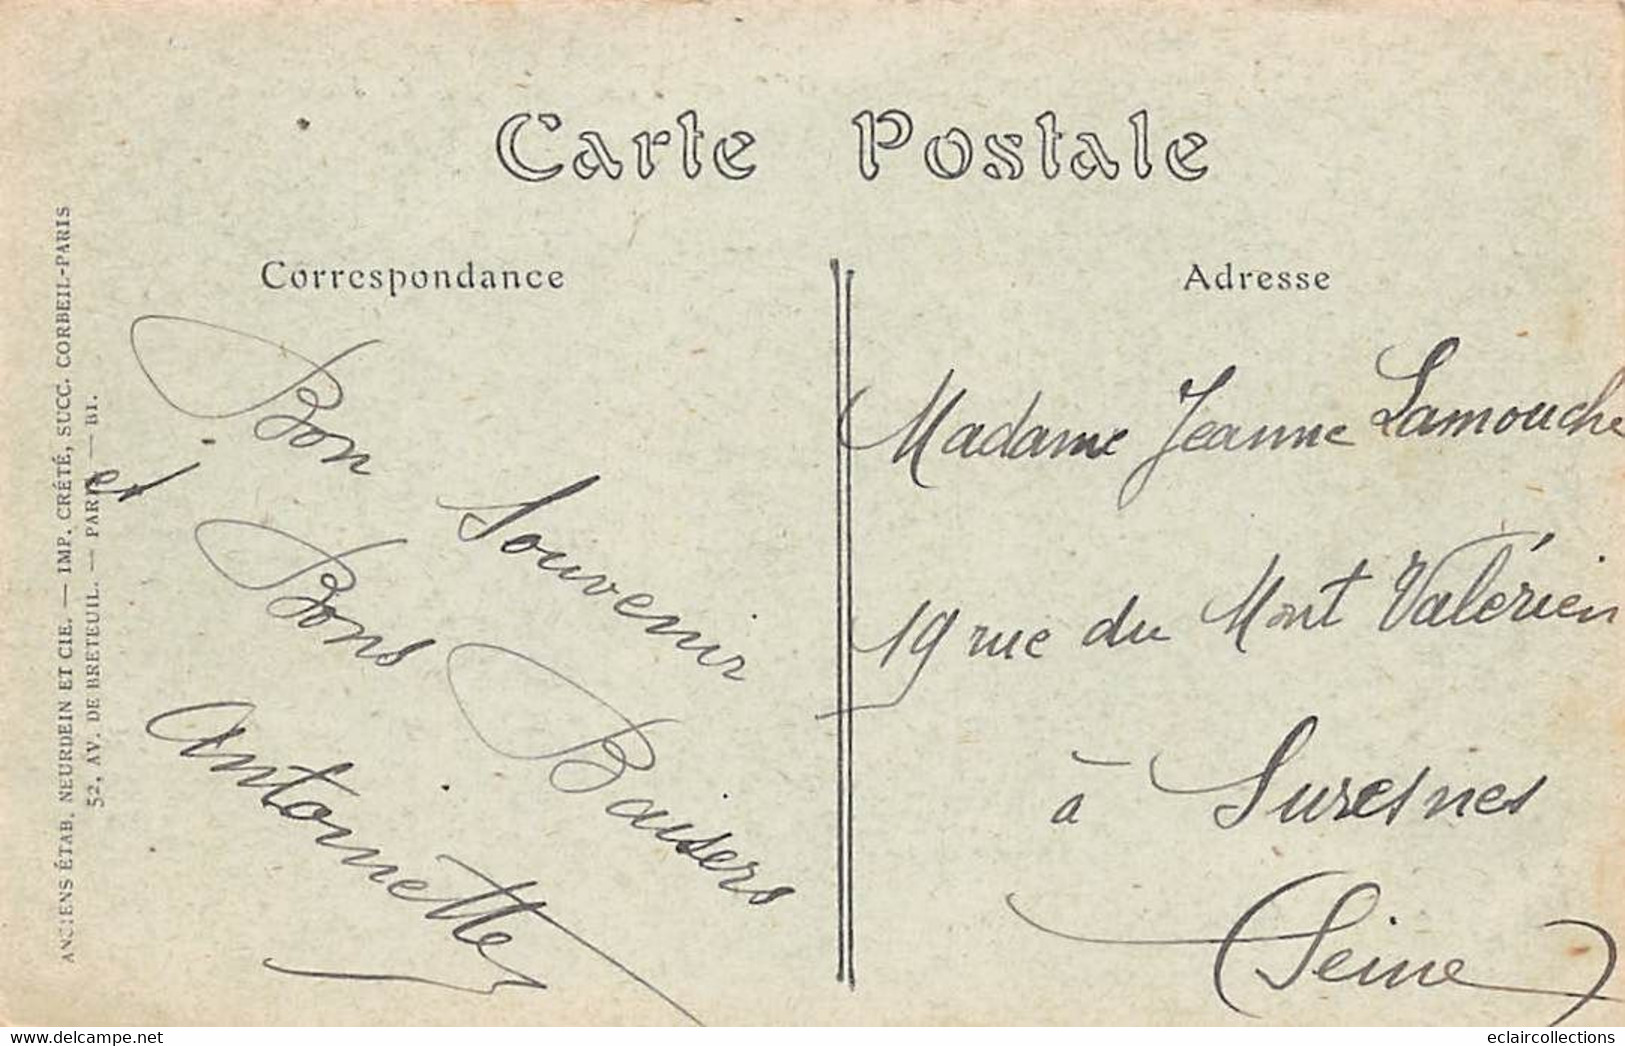 Carte Postale
Correspondance
Bon Souvenir
et Bons Baisers
Antoinette
Adresse
Madame Jeanne Lamouche
19 rue du Mont Valérien
à Suresnes
(Seine)
ANCIENS ÉTAB. NEURDEIN ET CIE. — IMP. CRÉTÉ, SUCC. CORBEIL-PARIS
52, AV. DE BRETEUIL. — PARIS — B1.
www.delcampe.net
eclaircollections